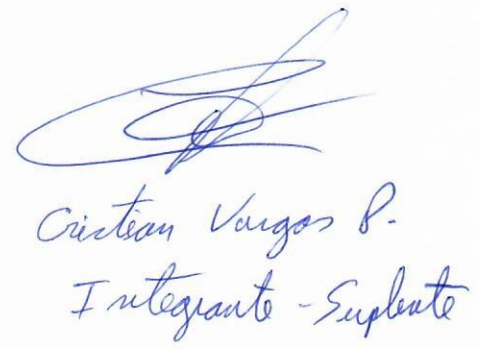 Cristian Vargas P.
Integrante - Suplente